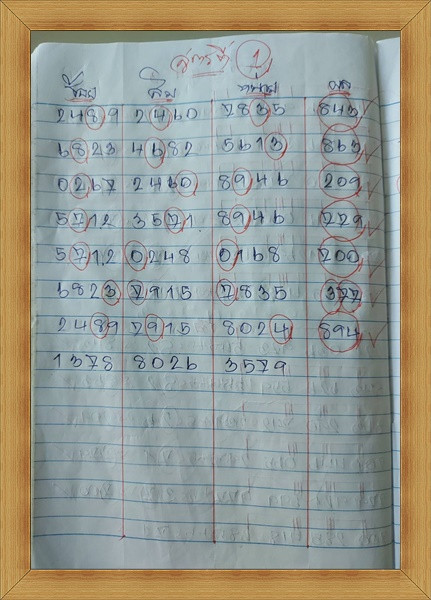 สูตรที่ 1
ร้อย สิบ หน่วย ผล
2489 2460 7835 843
6823 4682 5613 863
0267 2460 8946 209
5712 3571 8946 779
5712 0248 0168 700
6823 7915 7835 377
2489 7915 8024 894
1378 8026 3579